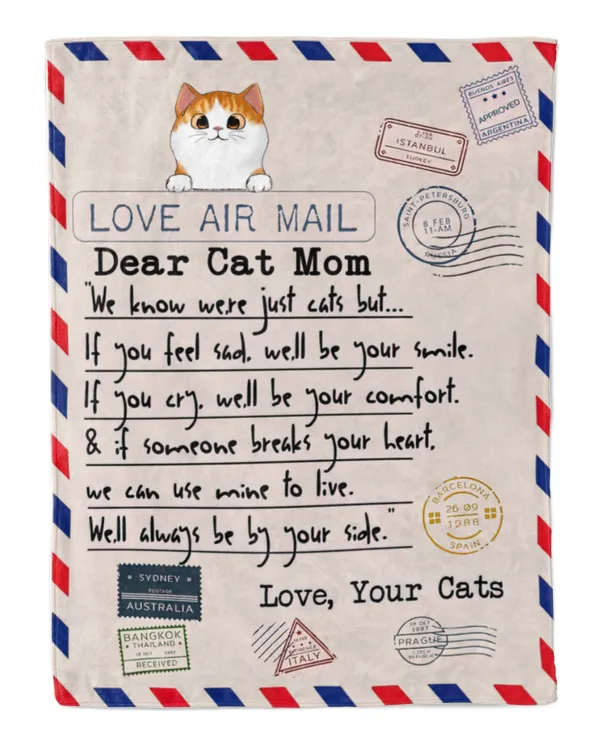 BUENOS AIRES
APPROVED
ARGENTINA
ISTANBUL
TURKEY
SAINT-PETERSBURG
8 FEB
11-AM
RUSSIA
LOVE AIR MAIL
Dear Cat Mom
"We know we,re just cats but...
If you feel sad, we,ll be your smile.
If you cry, we,ll be your comfort.
& if someone breaks your heart,
we can use mine to live.
We,ll always be by your side."
BARCELONA
26 09
1988
SPAIN
Love, Your Cats
SYDNEY
POSTAGE
AUSTRALIA
BANGKOK
THAILAND
RECEIVED
ITALY
18 OCT
1987
PRAGUE
CZECH
REPUBLIC